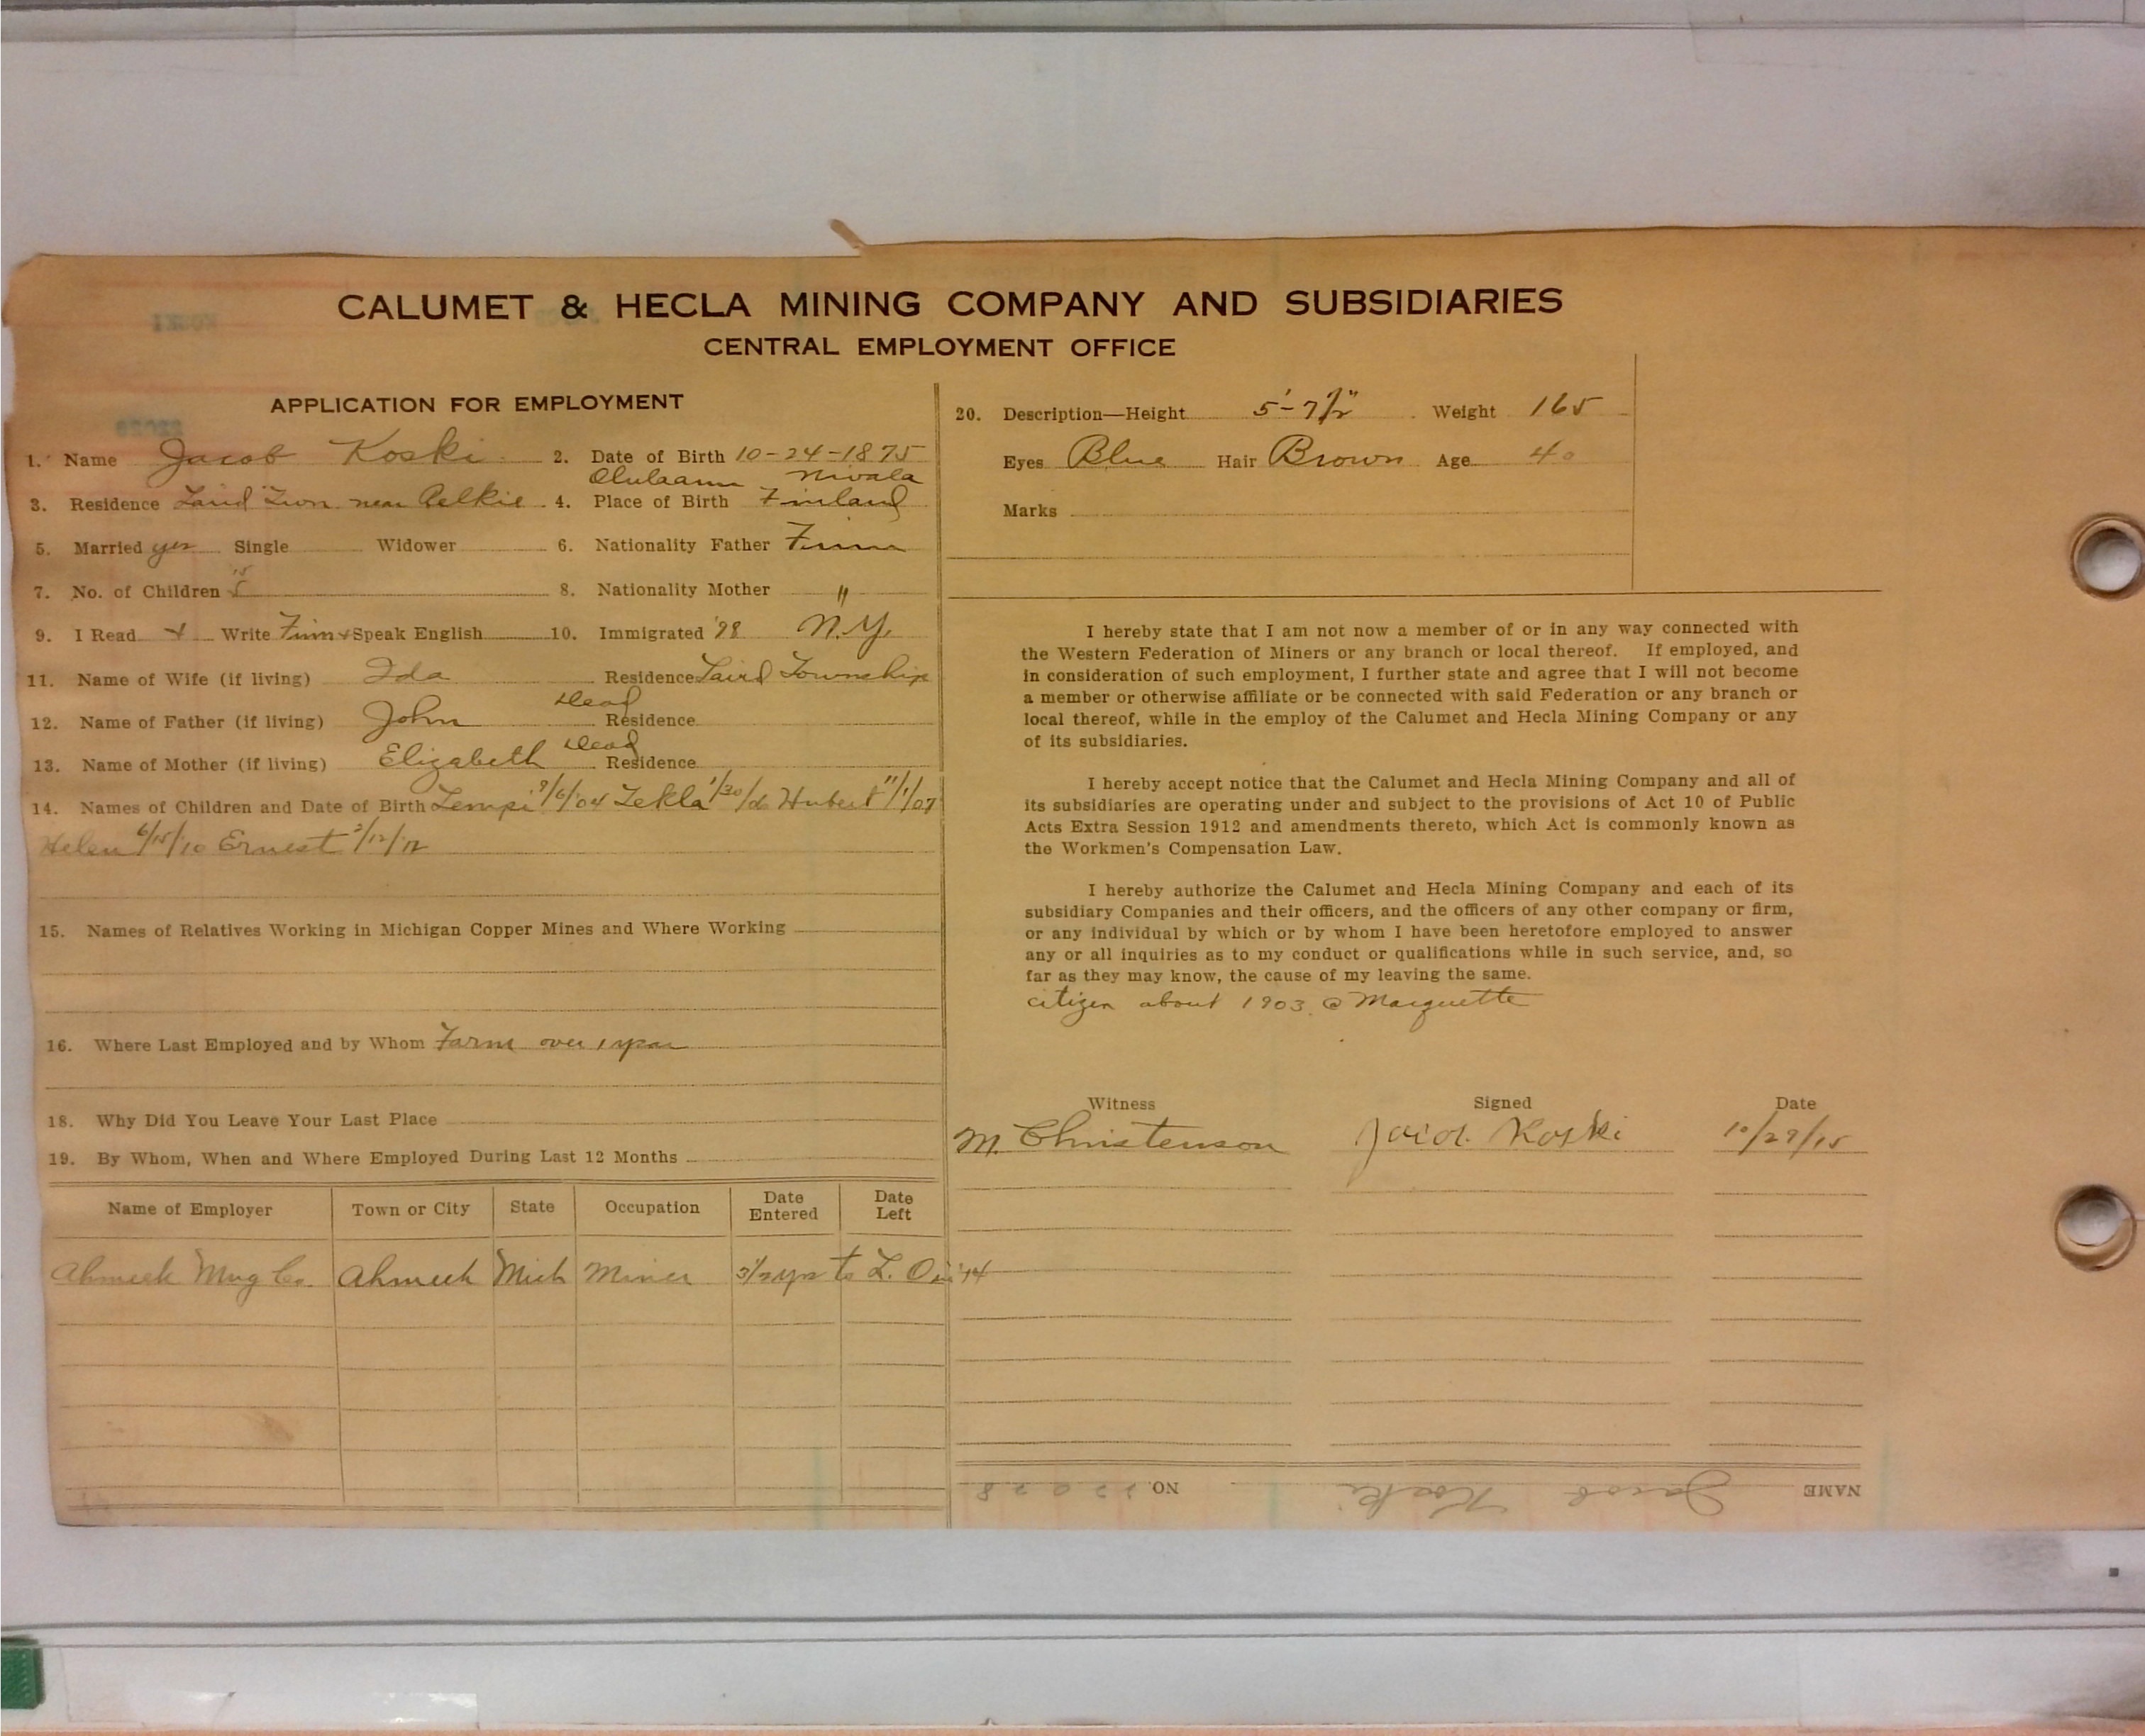 CALUMET & HECLA MINING COMPANY AND SUBSIDIARIES
CENTRAL EMPLOYMENT OFFICE
APPLICATION FOR EMPLOYMENT
1. Name Jacob Koski 2. Date of Birth 10-24-1875
Nivala
3. Residence Laird Twn. near Pelkie 4. Place of Birth Finland
5. Married yes Single Widower 6. Nationality Father Finn
7. No. of Children 5 8. Nationality Mother "
9. I Read + Write Finn + Speak English 10. Immigrated '98 N.Y.
11. Name of Wife (if living) Ida Residence Laird Township
12. Name of Father (if living) John Dead Residence
13. Name of Mother (if living) Elizabeth Dead Residence
14. Names of Children and Date of Birth Lempi 9/6/04 Tekla 1/30/06 Hubert 11/1/07
Helen 6/15/10 Ernest 2/12/12
15. Names of Relatives Working in Michigan Copper Mines and Where Working
16. Where Last Employed and by Whom Farm over 1 year
18. Why Did You Leave Your Last Place
19. By Whom, When and Where Employed During Last 12 Months
Name of Employer Town or City State Occupation Date Entered Date Left
Ahmeek Mng Co. Ahmeek Mich Miner 3 1/2 yrs to '14
20. Description—Height 5'-7 1/2" Weight 165
Eyes Blue Hair Brown Age 40
Marks
I hereby state that I am not now a member of or in any way connected with
the Western Federation of Miners or any branch or local thereof. If employed, and
in consideration of such employment, I further state and agree that I will not become
a member or otherwise affiliate or be connected with said Federation or any branch or
local thereof, while in the employ of the Calumet and Hecla Mining Company or any
of its subsidiaries.
I hereby accept notice that the Calumet and Hecla Mining Company and all of
its subsidiaries are operating under and subject to the provisions of Act 10 of Public
Acts Extra Session 1912 and amendments thereto, which Act is commonly known as
the Workmen's Compensation Law.
I hereby authorize the Calumet and Hecla Mining Company and each of its
subsidiary Companies and their officers, and the officers of any other company or firm,
or any individual by which or by whom I have been heretofore employed to answer
any or all inquiries as to my conduct or qualifications while in such service, and, so
far as they may know, the cause of my leaving the same.
citizen about 1903 @ Marquette
Witness Signed Date
M. Christenson Koski 10/29/15
NAME Jacob Koski NO. 22028